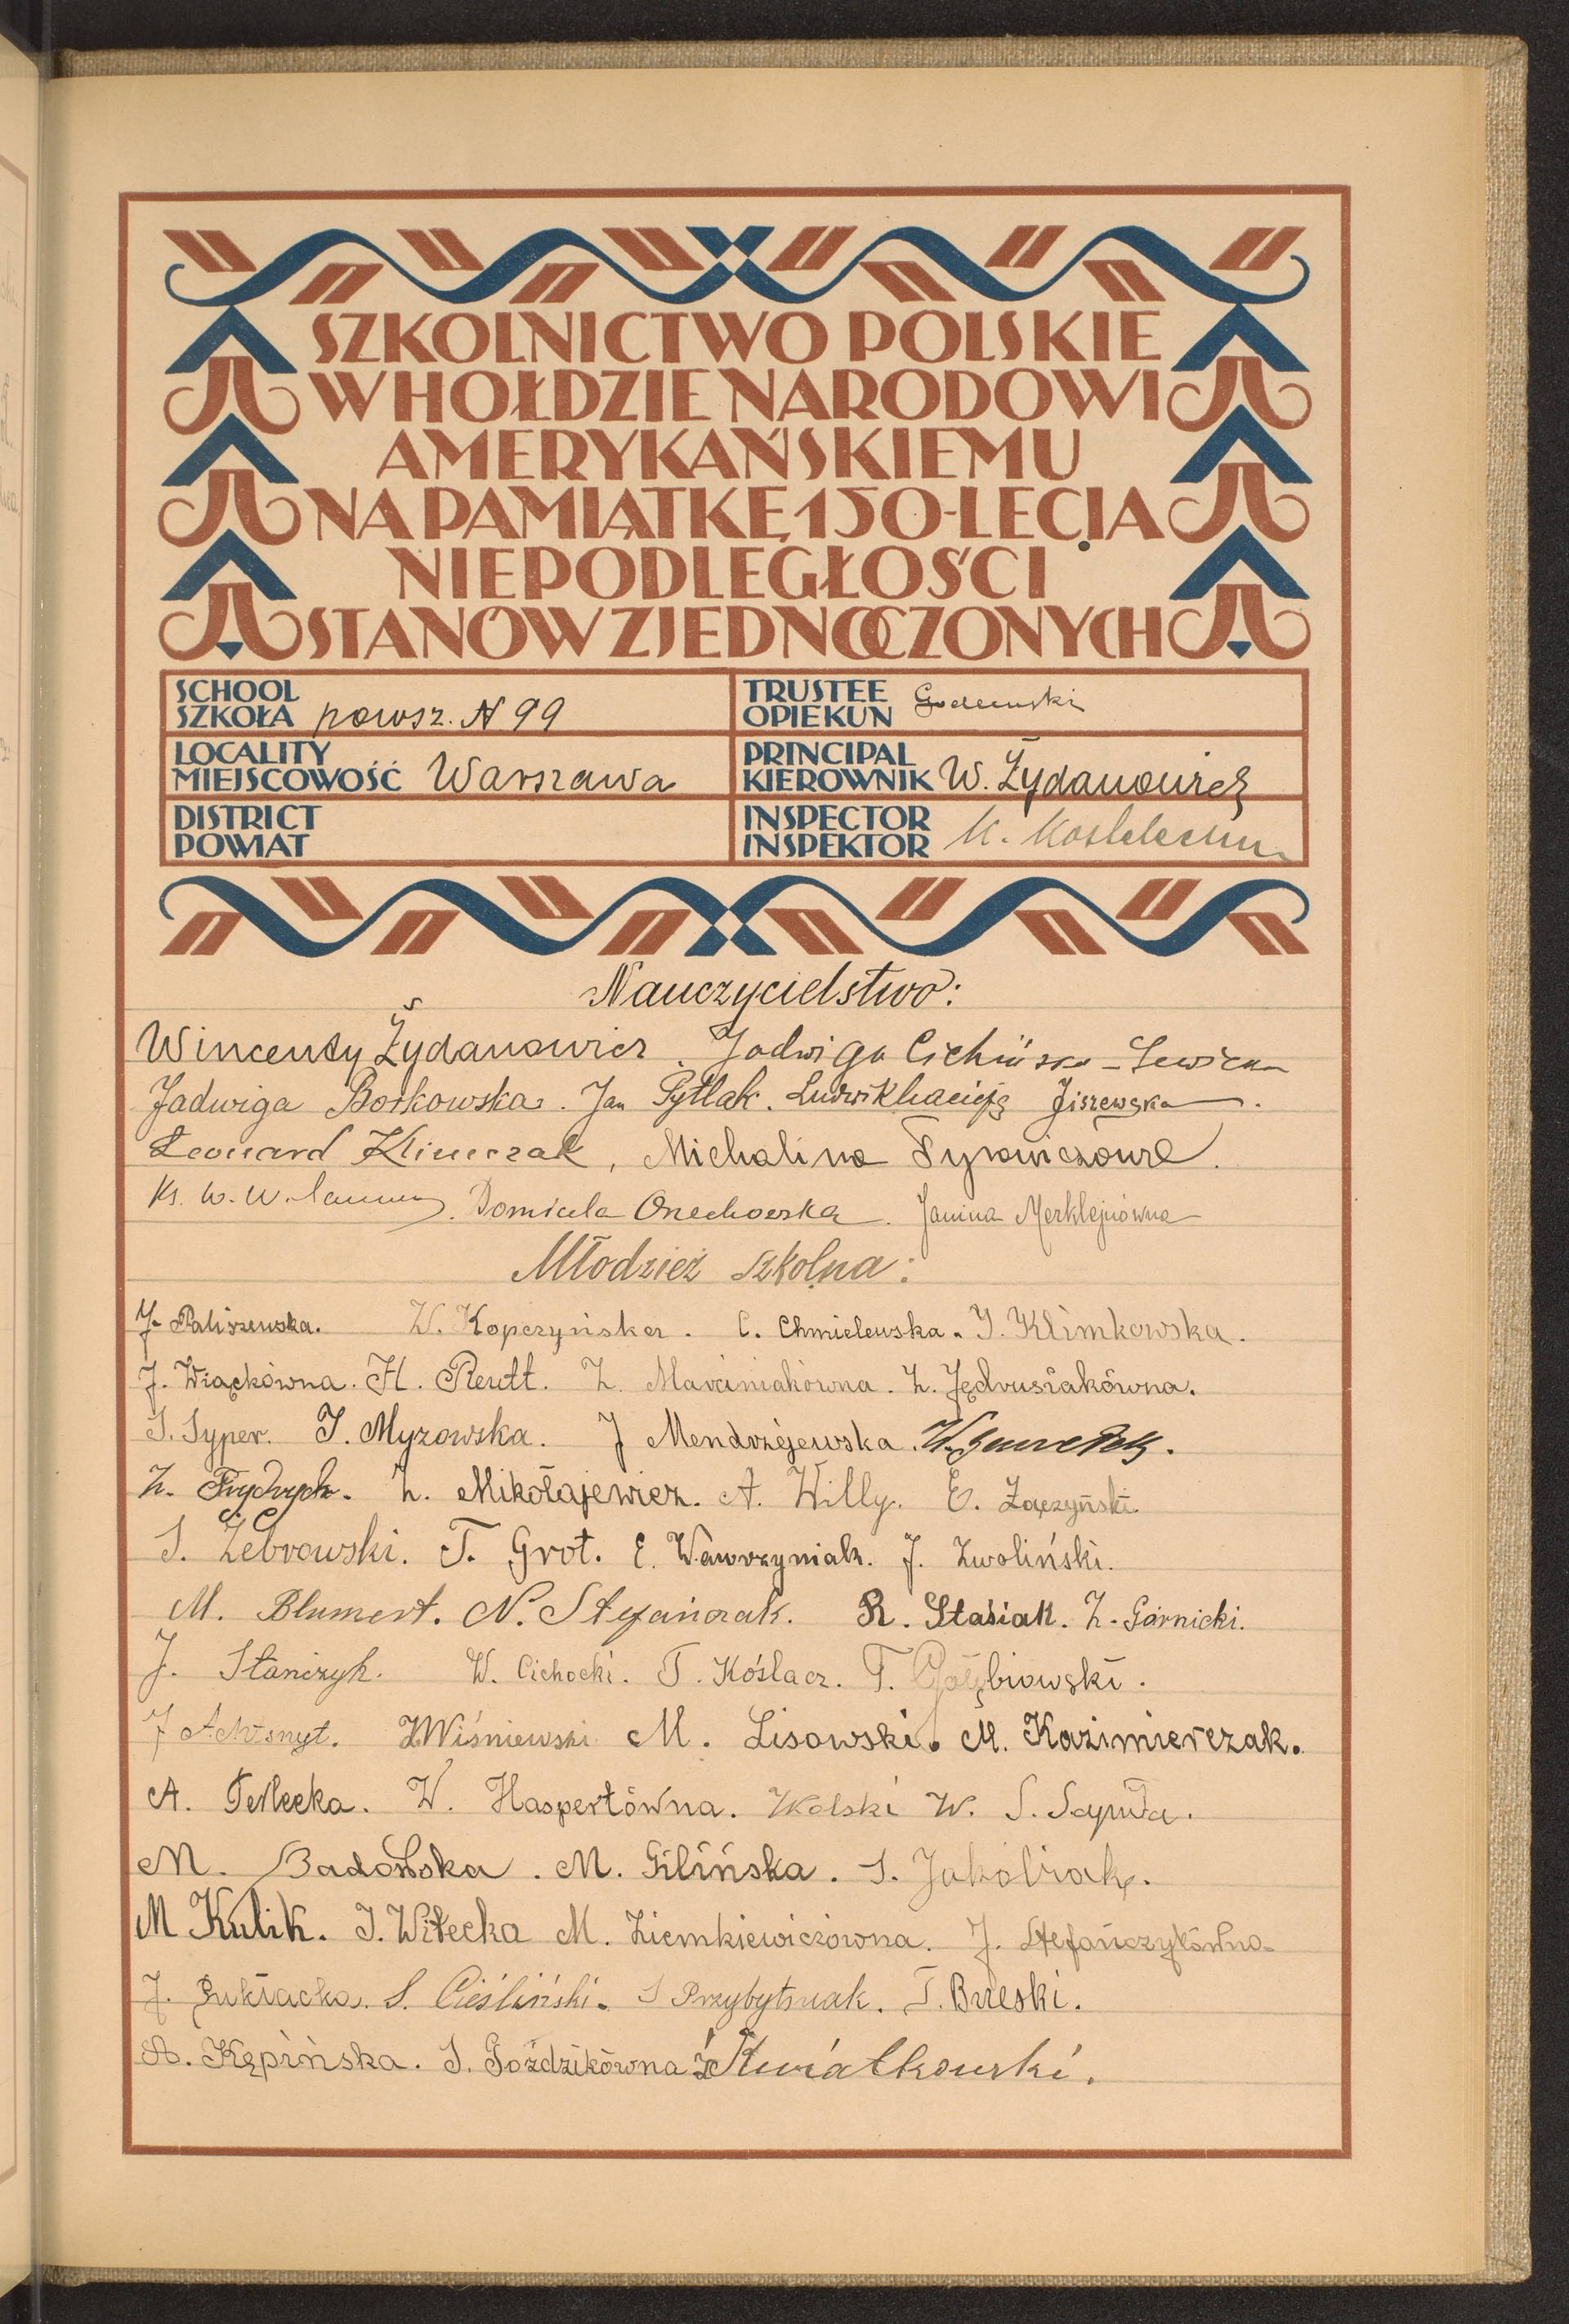 SZKOLNICTWO POLSKIE
W HOŁDZIE NARODOWI
AMERYKAŃSKIEMU
NA PAMIĄTKĘ 150-LECIA
NIEPODLEGŁOŚCI
STANÓW ZJEDNOCZONYCH
SCHOOL
SZKOŁA powsz. N 99
TRUSTEE
OPIEKUN
LOCALITY
MIEJSCOWOŚĆ Warszawa
PRINCIPAL
KIEROWNIK W. Żydanowicz
DISTRICT
POWIAT
INSPECTOR
INSPEKTOR K.
Nauczycielstwo:
Wincenty Żydanowicz. Jadwiga Cichińska-Lewicka
Jadwiga Borkowska. Jan Pytlak. Jiszewska.
Leonard Klimczak, Michalina
Ks. W. Domicela Orzechowska. Janina Merklejnówna
Młodzież szkolna:
J. Paliszewska. W. Kopczyńska. C. Chmielewska. J. Klimkowska.
J. Wiąckówna. H. Reutt. Z. Marciniakówna. Z. Jędrusiakówna.
S. Syper. J. Myzowska. J Mendrzejewska.
Z. Frydrych. Z. Mikołajewicz. A. Willy. E. Zączyński.
S. Żebrowski. T. Grot. E. Wawrzyniak. J. Zwoliński.
M. Blumert. N. Stefańczak. R. Stasiak. Z. Górnicki.
J. Stańczyk. W. Cichocki. T. Koślacz. T. Gołębiowski.
J Z Wiśniewski M. Lisowski. M. Kazimierczak.
A. Terlecka. W. Haspertówna. Wolski W. S.
M. Badowska. M. Gilińska. S. Jakóbiak.
M Kulik. J. Witecka M. Ziemkiewiczówna. J. Stefańczykówna
J. S. Cieśliński. S Przybytniak. T. Bureski.
A. Kępińska. S. Goździkówna Ż Kwiatkowski.